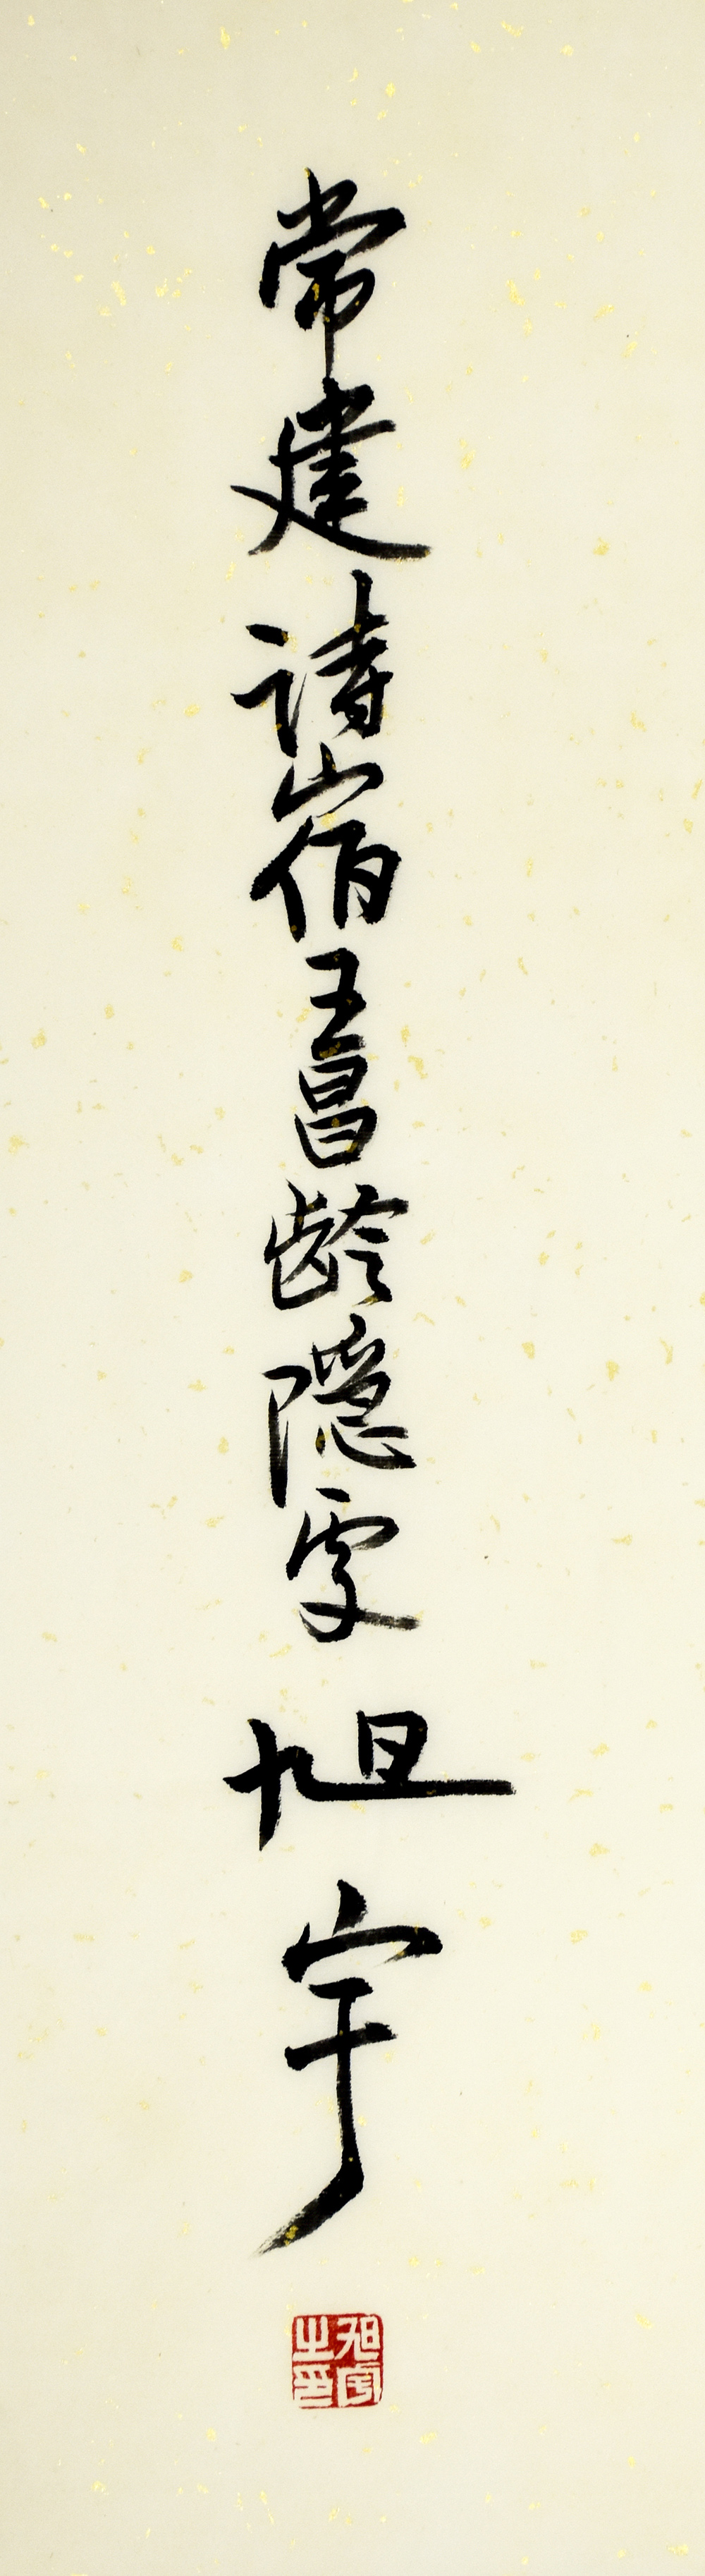 常建詩宿王昌龄隱處 旭宇
旭宇之印